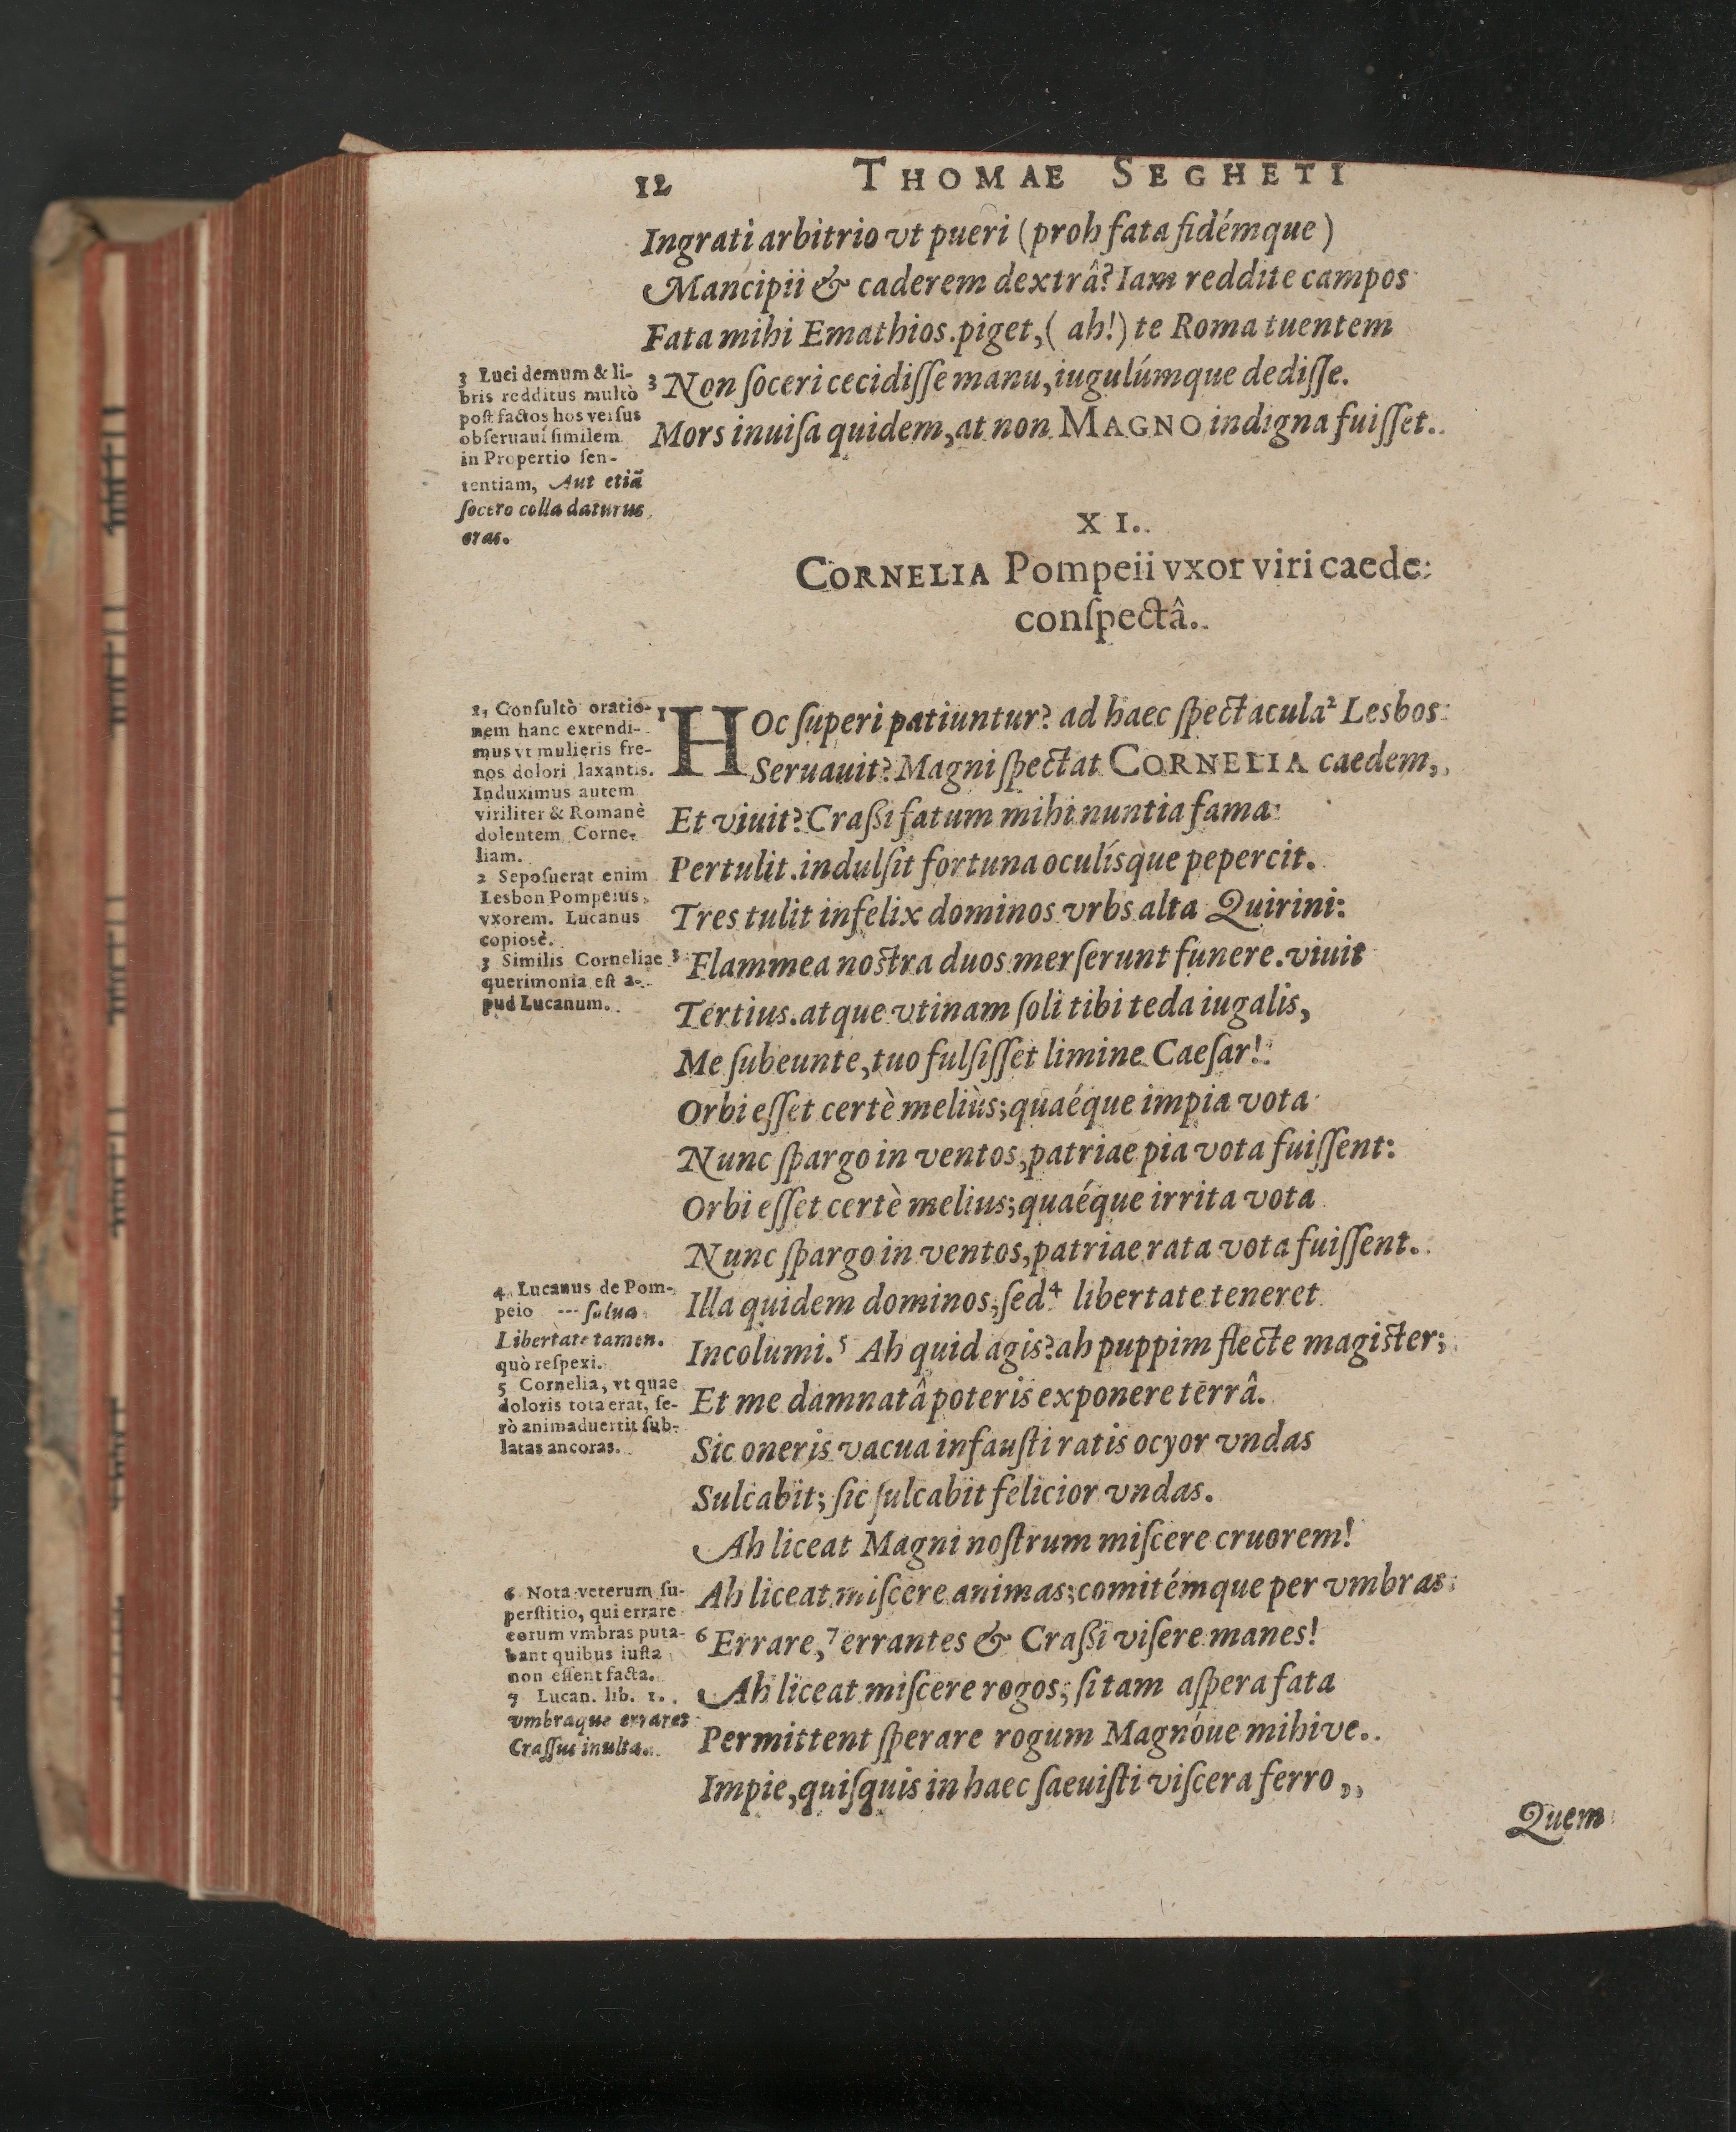 12 THOMAE SEGHETI
Ingrati arbitrio vt pueri (proh fata fidémque)
Mancipii & caderem dextrâ? Iam reddite campos
Fata mihi Emathios. piget, (ah!) te Roma tuentem
³ Non ſoceri cecidiſſe manu, iugulúmque dediſſe.
Mors inuiſa quidem, at non MAGNO indigna fuiſſet.
3 Luci demum & li-
bris redditus multò
poſt factos hos verſus
obſeruaui ſimilem
in Propertio ſen-
tentiam, Aut etiã
ſocero colla daturus
eras.
XI.
CORNELIA Pompeii vxor viri caede
conſpectâ.
¹ HOc ſuperi patiuntur? ad haec ſpectacula² Lesbos
Seruauit? Magni ſpectat CORNELIA caedem,
Et viuit? Craßi fatum mihi nuntia fama
Pertulit. indulſit fortuna oculíſque pepercit.
Tres tulit infelix dominos vrbs alta Quirini:
³ Flammea noſtra duos merſerunt funere. viuit
Tertius. atque vtinam ſoli tibi teda iugalis,
Me ſubeunte, tuo fulſiſſet limine Caeſar!
Orbi eſſet certè meliùs; quaéque impia vota
Nunc ſpargo in ventos, patriae pia vota fuiſſent:
Orbi eſſet certè melius; quaéque irrita vota
Nunc ſpargo in ventos, patriae rata vota fuiſſent.
Illa quidem dominos, ſed⁴ libertate teneret
Incolumi.⁵ Ah quid agis? ah puppim flecte magiſter;
Et me damnatâ poteris exponere terrâ.
Sic oneris vacua infauſti ratis ocyor vndas
Sulcabit; ſic ſulcabit felicior vndas.
Ah liceat Magni noſtrum miſcere cruorem!
Ah liceat miſcere animas; comitémque per vmbras
⁶ Errare, ⁷ errantes & Craßi viſere manes!
Ah liceat miſcere rogos; ſi tam aſpera fata
Permittent ſperare rogum Magnóue mihive.
Impie, quiſquis in haec ſaeuiſti viſcera ferro,
1 Conſultò oratio-
nem hanc extendi-
mus vt mulieris fre-
nos dolori laxantis.
Induximus autem
viriliter & Romanè
dolentem Corne-
liam.
2 Sepoſuerat enim
Lesbon Pompeius
vxorem. Lucanus
copiosè.
3 Similis Corneliae
querimonia eſt a-
pud Lucanum.
4 Lucanus de Pom-
peio --- ſalua
Libertate tamen.
quò reſpexi.
5 Cornelia, vt quae
doloris tota erat, ſe-
rò animaduertit ſub-
latas ancoras.
6 Nota veterum ſu-
perſtitio, qui errare
eorum vmbras puta-
bant quibus iuſta
non eſſent facta.
7 Lucan. lib. 1.
vmbraque erraret
Craſſus inulta.
Quem